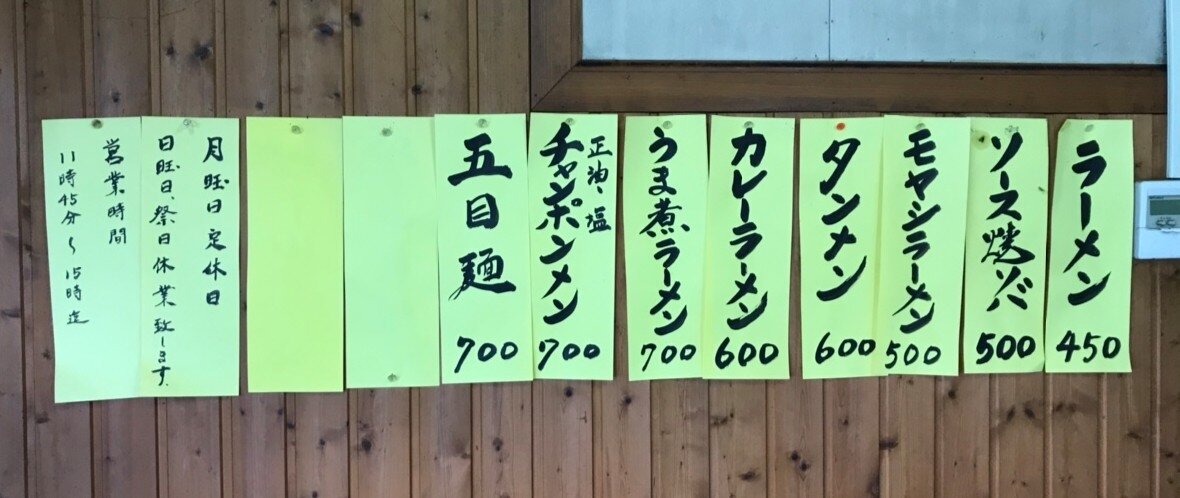 ラーメン
450
ソース焼ソバ
500
モヤシラーメン
500
タンメン
600
カレーラーメン
600
うま煮ラーメン
700
正油、塩
チャンポンメン
700
五目麺
700
月旺日定休日
日旺日、祭日休業致します。
営業時間
11時45分〜15時迄